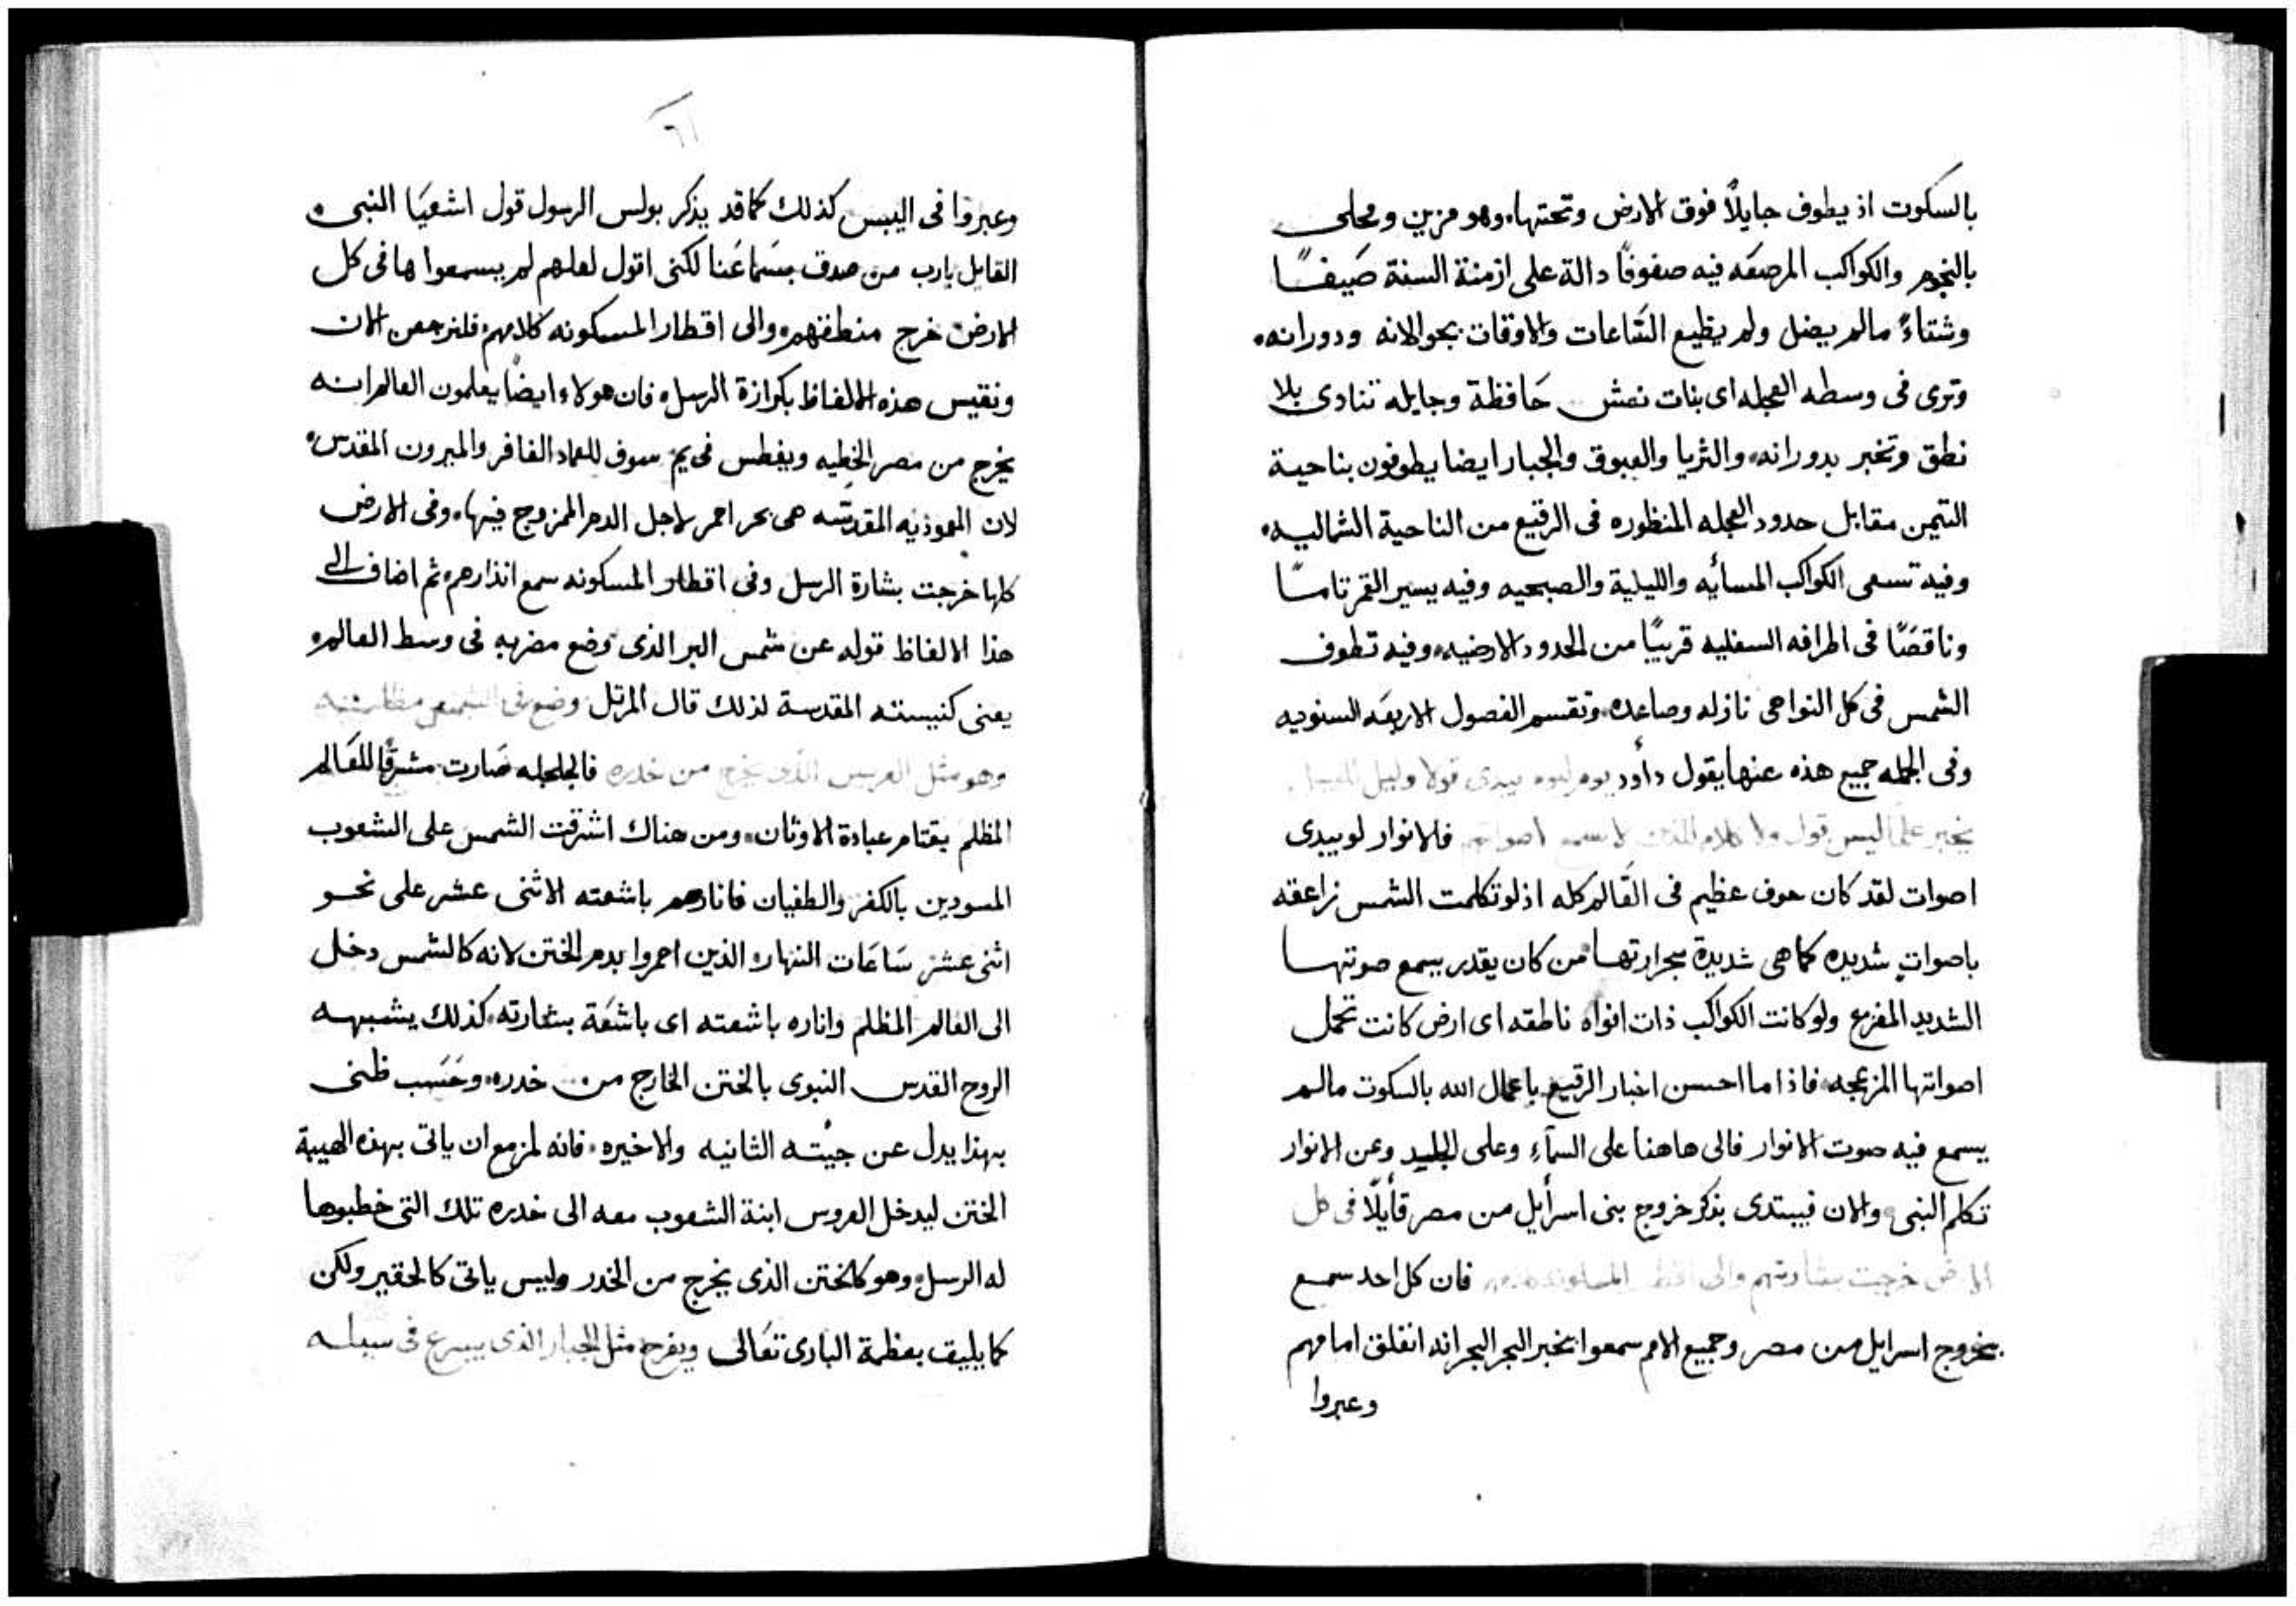 بالسكوت اذ يطوف جايلاً فوق الارض وتحتها، وهو مزين ومحلى
بالنجوم والكواكب المرصعَه فيه صفوفاً دالة على ازمنة السنة صَيفًا
وشتاءً مالم يضل ولم يظيع السَّاعات والاوقات بجولانه ودورانه،
وترى فى وسطه العجله اى بنات نعش حَافظة وجايله تنادى بلا
نطق وتخبر بدورانه، والثريا والعيوق والجبار ايضا يطوفون بناحية
التيمن مقابل حدود العجله المنظوره فى الرقيع من الناحية الشماليه،
وفيه تسعى الكواكب المسائيه والليلية والصبحيه وفيه يسير القمر تامًا
وناقصًا فى اطرافه السفليه قريبًا من الحدود الارضيه، وفيه تطوف
الشمس فى كل النواحى نازله وصاعده، وتقسم الفصول الاربعَه السنويه
وفى الجمله جميع هذه عنها يقول دأود يوم ليوم يبدى قولا وليل
يخبر علمًا ليس قول ولا كلام الذى لا يسمع اصواتهم فالانوار لو يبدى
اصوات لقد كان خوف عظيم فى العَالم كله اذ لو تكلمت الشمس زاعقه
باصواتٍ شديده كما هى شديدة بحرارتها من كان يقدر يسمع صوتها
الشديد المفزع ولو كانت الكواكب ذات افواه ناطقه اى ارض كانت تحمل
اصواتها المزعجه، فاذا ما احسن اخبار الرقيع باعمال الله بالسكوت مالم
يسمع فيه صوت الانوار فالى هاهنا على السمآء وعلى الجلد وعن الانوار
تكلم النبى، والان فيبتدى بذكر خروج بنى اسرأيل من مصر قأيلًا فى كل
الارض خرجت بشارتهم والى اقطار المسكونه فان كل احد سمع
بخروج اسرايل من مصر وجميع الامم سمعوا بخبر البحر البحر انه انفلق امامهم
وعبروا
٦١
وعبروا فى اليبس كذلك كما قد يذكر بولس الرسول قول اشعيَا النبى،
القايل يارب من صدق بسَماعَنا لكنى اقول لعلهم لم يسمعوا ها فى كل
الارض خرج منطقهم، والى اقطار المسكونه كلامهم، فلنرجعن الان
ونقيس هذه الالفاظ بكرازة الرسل، فان هولاء ايضاً يعلمون العالم انه
يخرج من مصر الخطيه ويغطس فى يم سوف للعماد الغافر والميرون المقدس،
لان المعموذيه المقدسَّه هى بحر احمر لاجل الدم الممزوج فيها، وفى الارض
كلها خرجت بشارة الرسل وفى اقطار المسكونه سمع انذارهم، ثم اضاف الى
هذا الالفاظ قوله عن شمس البر الذى وضع مضربه فى وسط العالم،
يعنى كنيسته المقدسة لذلك قال المرتل وضع فى الشمس مظلته
وهو مثل العريس الذى يخرج من خدره فالجلجله صَارت مشرقًا للعَالم
المظلم بقتام عبادة الاوثان، ومن هناك اشرقت الشمس على الشعوب
المسودين بالكفر والطغيان فانارهم باشعته الاثنى عشر على نحو
اثنى عشر سَاعَات النهار، الذين احمروا بدم الختن لانه كالشمس دخل
الى العالم المظلم واناره باشعته اى باشعَة بشارته، كذلك يشبهه
الروح القدس النبوى بالختن الخارج من خدره، وحَسَب ظنى
بهذا يدل عن جيئته الثانيه والاخيره، فانه لمزمع ان ياتى بهذه الهيبة
الختن ليدخل العروس ابنة الشعوب معه الى خدره تلك التى خطبوها
له الرسل، وهو كالختن الذى يخرج من الخدر وليس ياتى كالحقير ولكن
كما يليق بعظمة البارى تعَالى ويفرح مثل الجبار الذى يسرع فى سبيله